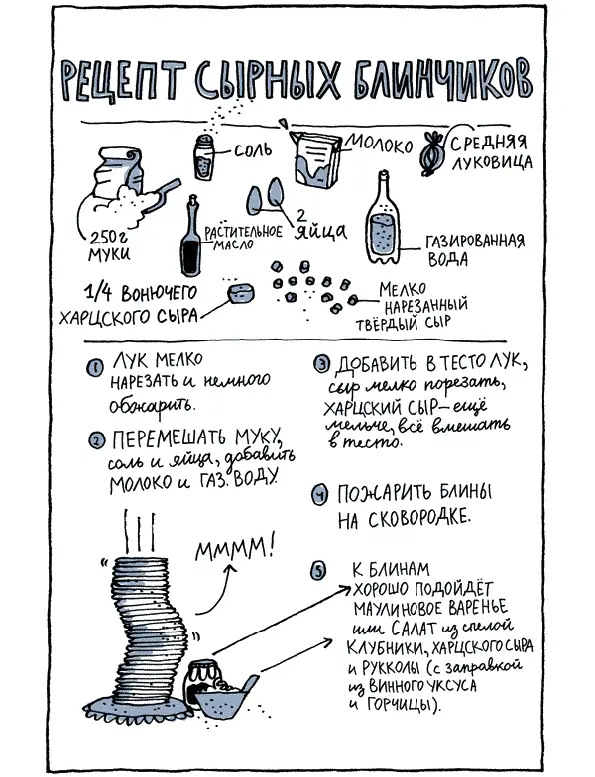 РЕЦЕПТ СЫРНЫХ БЛИНЧИКОВ
СОЛЬ
МОЛОКО
СРЕДНЯЯ
ЛУКОВИЦА
250 г
МУКИ
РАСТИТЕЛЬНОЕ
МАСЛО
2
ЯЙЦА
ГАЗИРОВАННАЯ
ВОДА
1/4 ВОНЮЧЕГО
ХАРЦСКОГО СЫРА
МЕЛКО
НАРЕЗАННЫЙ
ТВЁРДЫЙ СЫР
1 ЛУК МЕЛКО
НАРЕЗАТЬ и немного
обжарить.
2 ПЕРЕМЕШАТЬ МУКУ,
соль и яйца, добавить
МОЛОКО и ГАЗ. ВОДУ.
3 ДОБАВИТЬ В ТЕСТО ЛУК,
сыр мелко порезать,
ХАРЦСКИЙ СЫР – ещё
мельче, всё вмешать
в тесто.
4 ПОЖАРИТЬ БЛИНЫ
НА СКОВОРОДКЕ.
МММM!
5 К БЛИНАМ
ХОРОШО ПОДОЙДЁТ
МАЛИНОВОЕ ВАРЕНЬЕ
или САЛАТ из спелой
КЛУБНИКИ, ХАРЦСКОГО СЫРА
и РУККОЛЫ (с заправкой
из ВИННОГО УКСУСА
и ГОРЧИЦЫ).